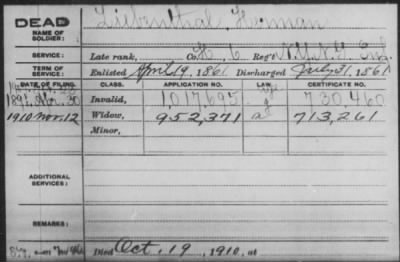 DEAD
NAME OF SOLDIER: Liebenthal, Herman
SERVICE: Late rank, Co. H, 6 Reg't N.Y.N.G. Inf.
TERM OF SERVICE: Enlisted April 19, 1861 Discharged July 31, 1861
DATE OF FILING. CLASS. APPLICATION NO. LAW. CERTIFICATE NO.
1891 30 Invalid, 1,017,695 730,460
1910 Nov. 12 Widow, 952,371 713,261
Minor,
ADDITIONAL SERVICES:
REMARKS:
Died Oct. 19, 1910, at